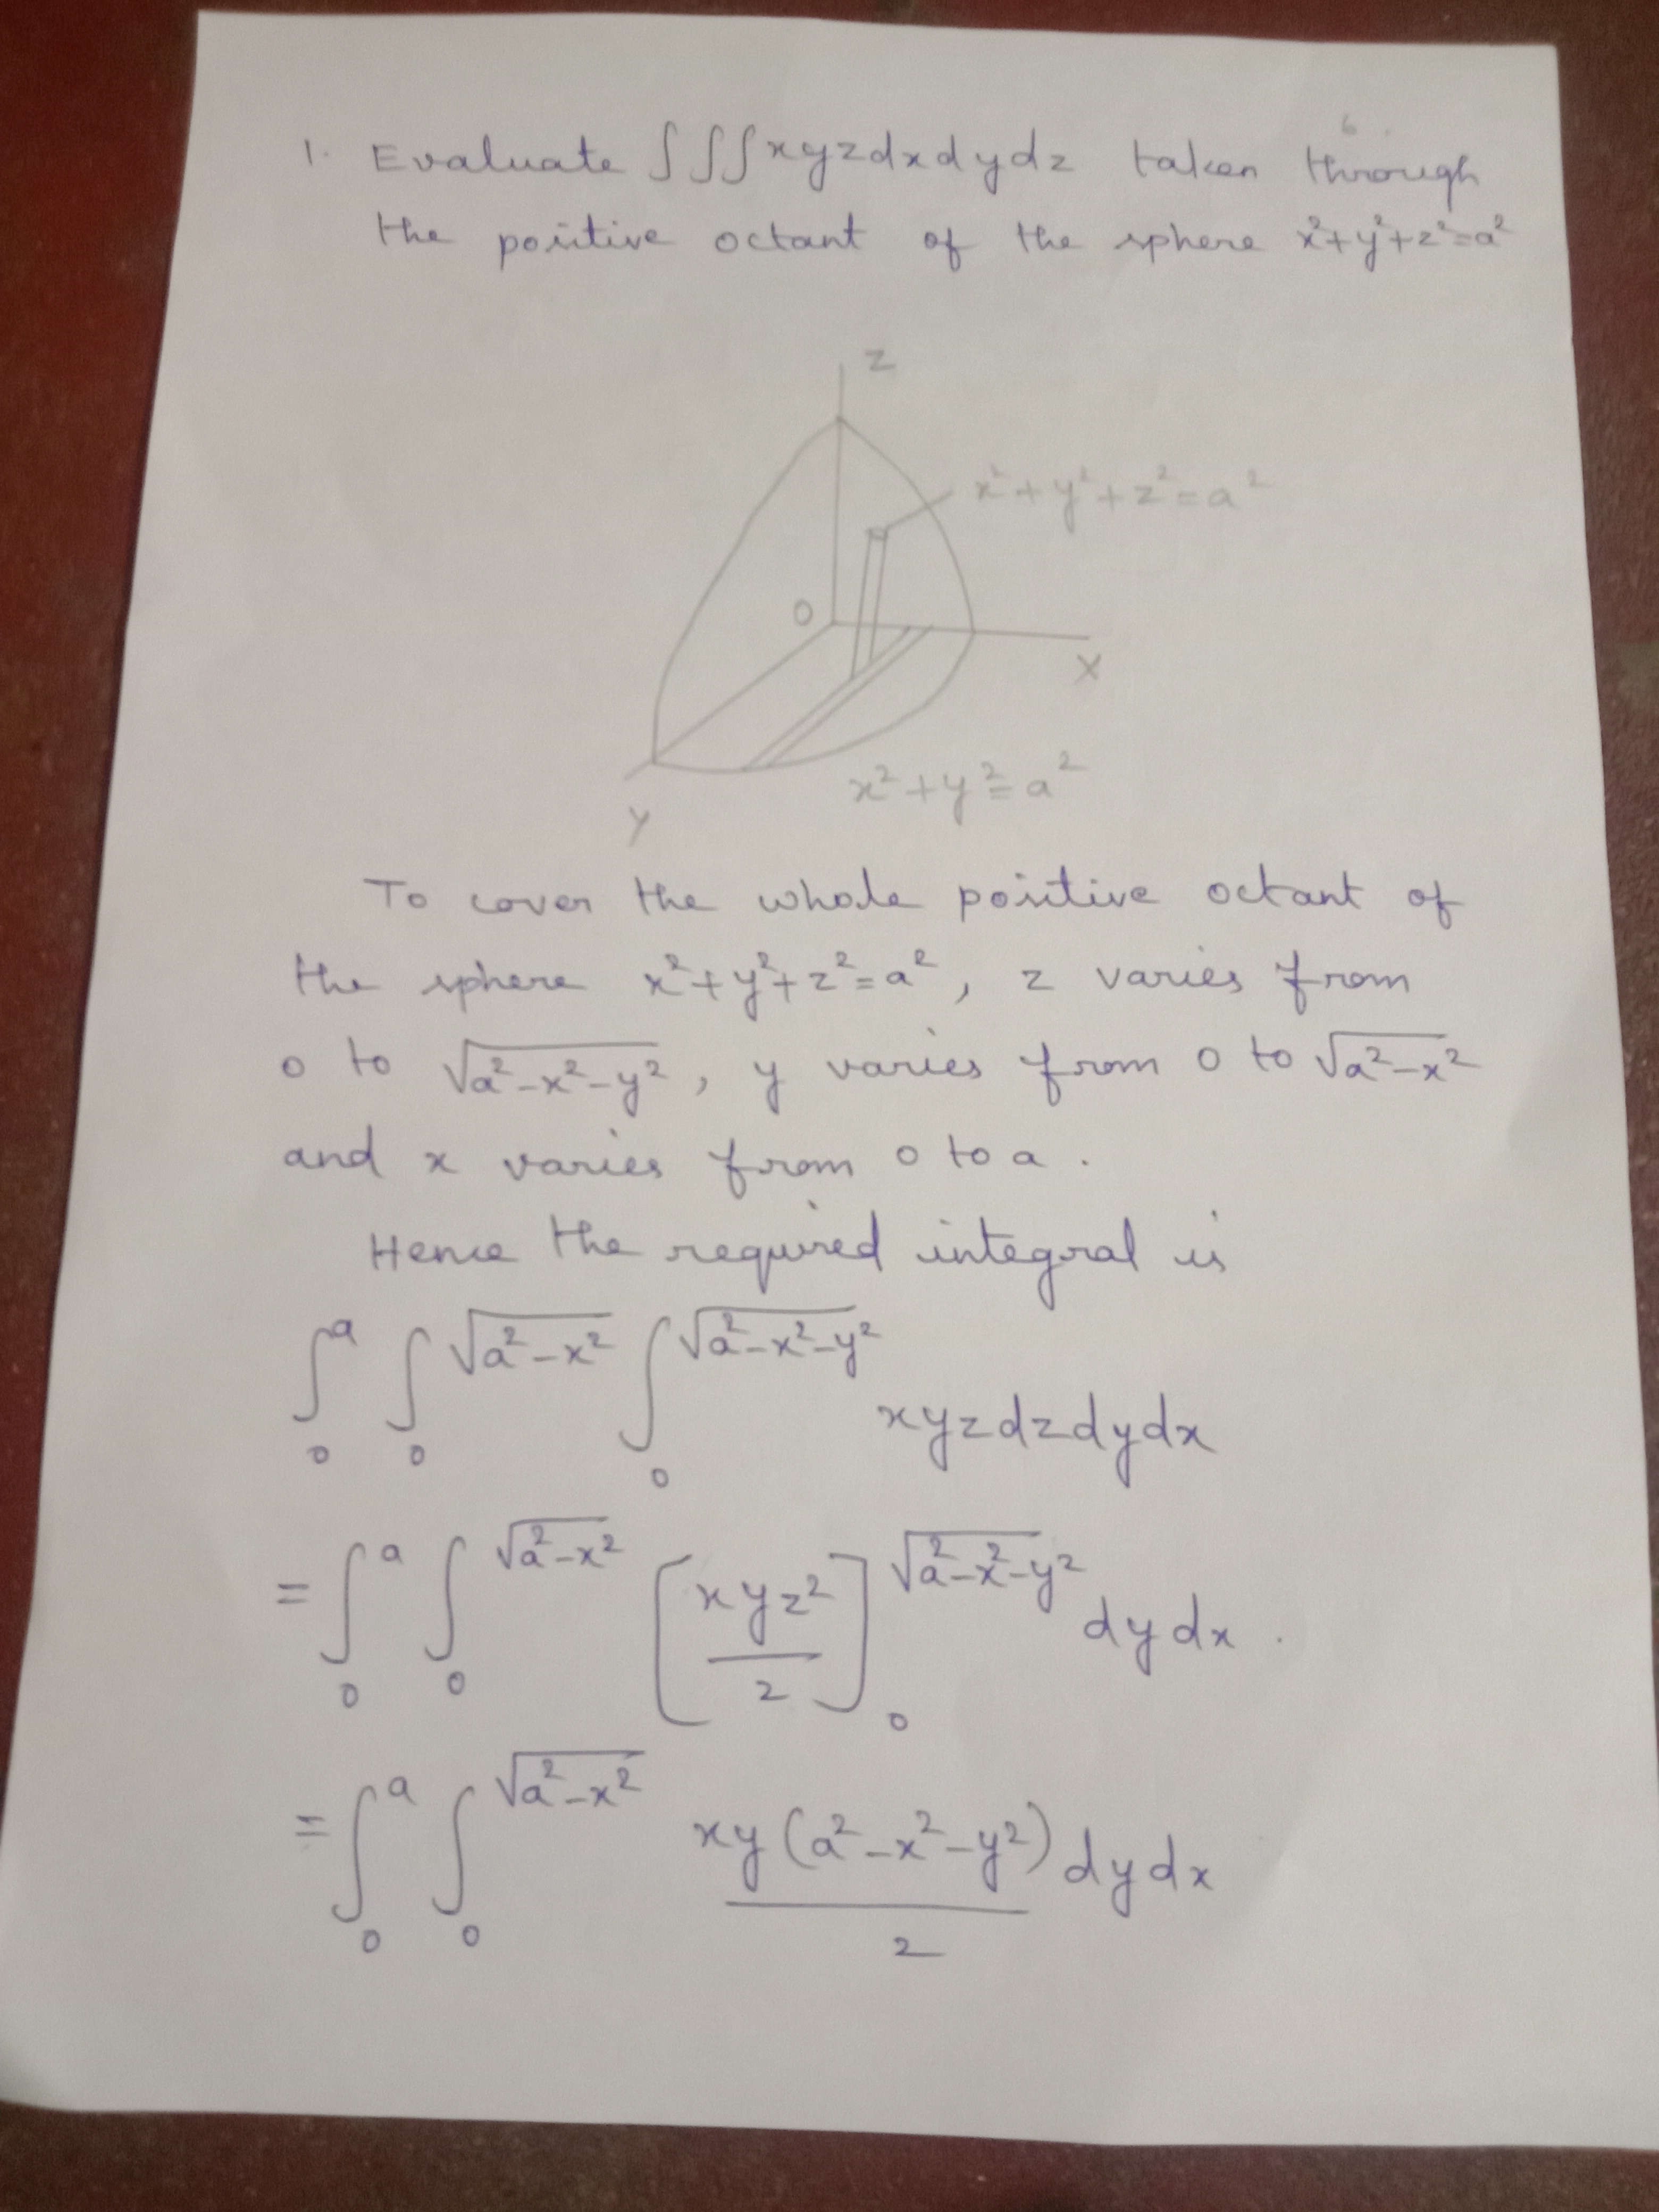 1. Evaluate ∫∫∫xyzdxdydz taken through
the positive octant of the sphere x²+y²+z²=a²
z
x²+y²+z²=a²
O
X
x²+y²=a²
y
To cover the whole positive octant of
the sphere x²+y²+z²=a², z varies from
0 to √(a²-x²-y²), y varies from 0 to √(a²-x²)
and x varies from 0 to a.
Hence the required integral is
∫₀^a ∫₀^√(a²-x²) ∫₀^√(a²-x²-y²) xyzdzdydx
= ∫₀^a ∫₀^√(a²-x²) [xyz²/2]₀^√(a²-x²-y²) dydx.
= ∫₀^a ∫₀^√(a²-x²) xy(a²-x²-y²)/2 dydx